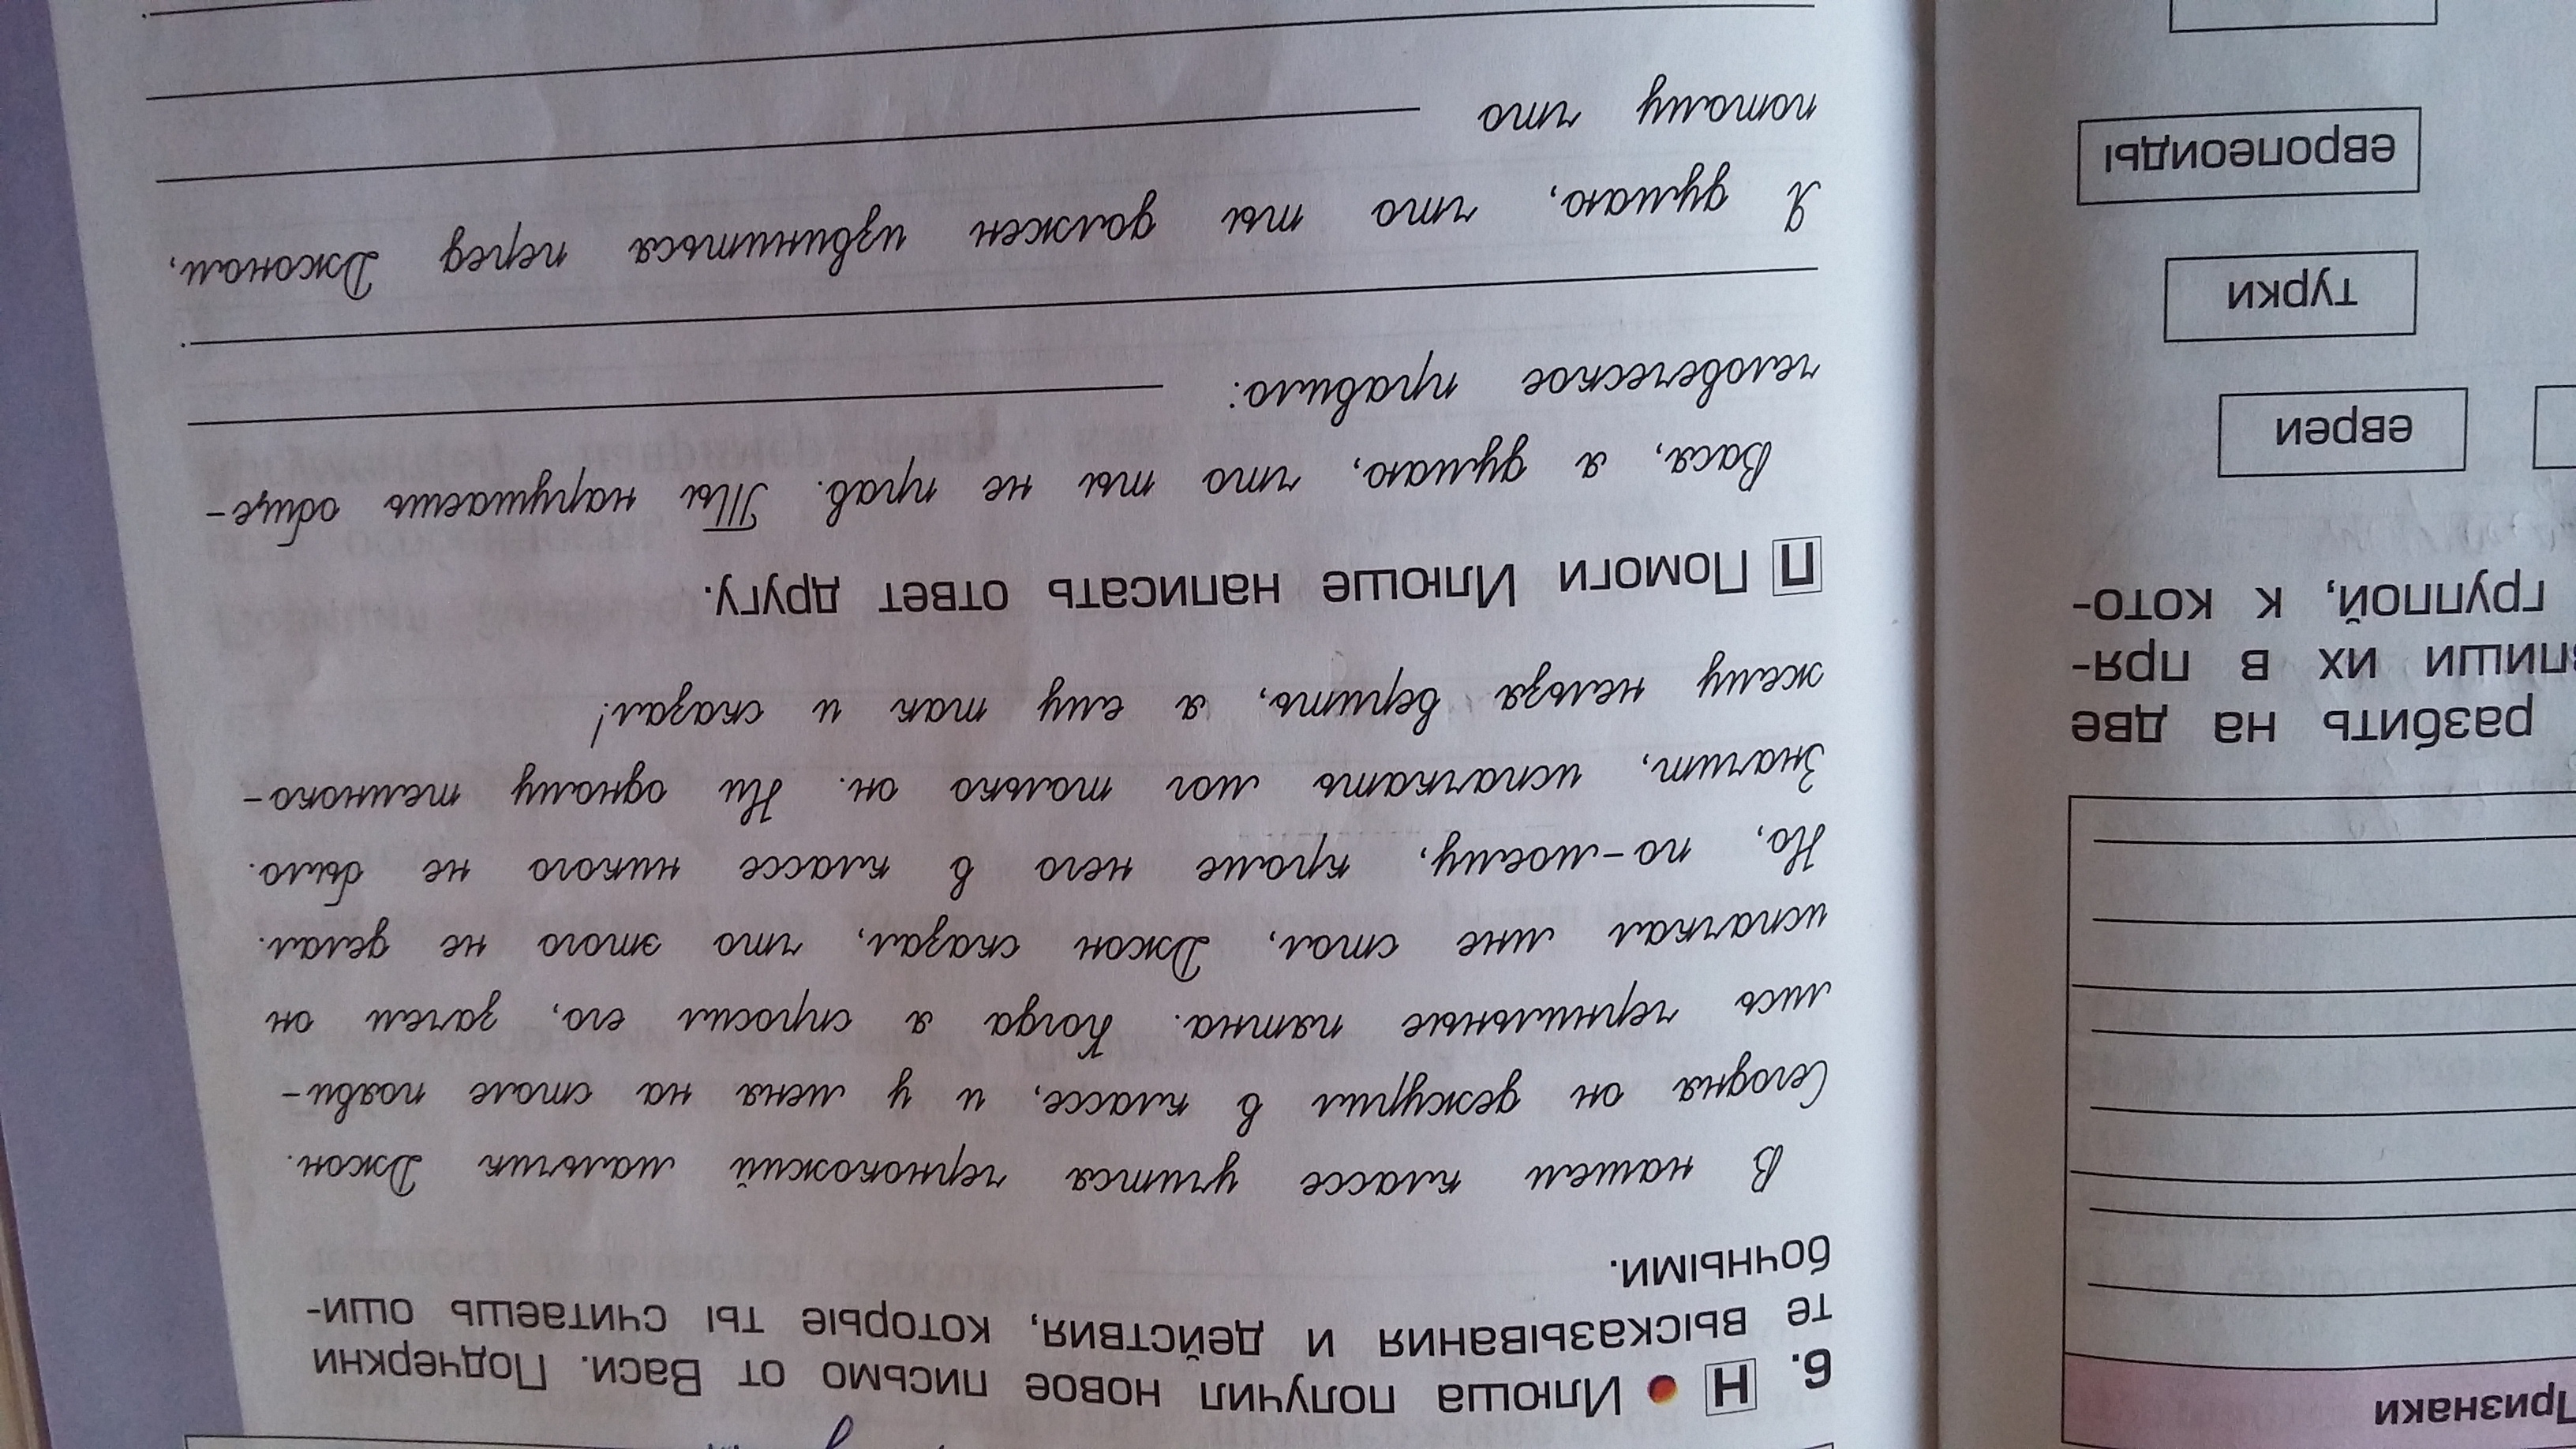 Признаки
разбить на две
пиши их в пря-
группой, к кото-
евреи
турки
европеоиды
6. Н • Илюша получил новое письмо от Васи. Подчеркни
те высказывания и действия, которые ты считаешь оши-
бочными.
В нашем классе учится чернокожий мальчик Джон.
Сегодня он дежурил в классе, и у меня на столе появи-
лись чернильные пятна. Когда я спросил его, зачем он
испачкал мне стол, Джон сказал, что этого не делал.
Но, по-моему, кроме него в классе никого не было.
Значит, испачкать мог только он. Ни одному темноко-
жему нельзя верить, я ему так и сказал!
П Помоги Илюше написать ответ другу.
Вася, я думаю, что ты не прав. Ты нарушаешь обще-
человеческое правило:
Я думаю, что ты должен извиниться перед Джоном,
потому что